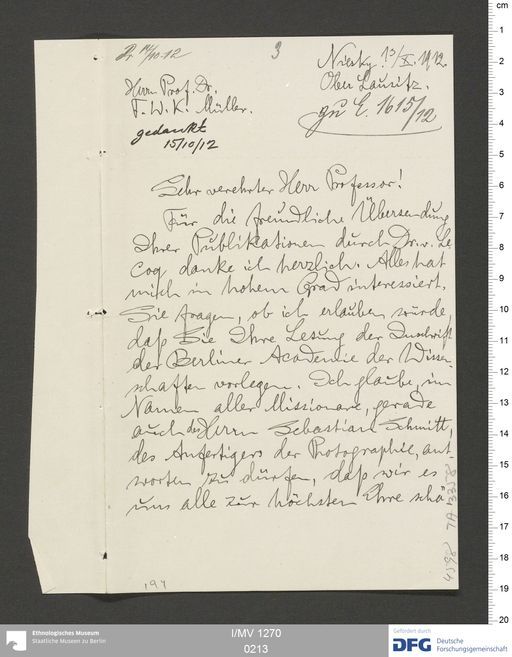 Pr 14/10.12
3
Niesky 13/X. 1912.
Ober Lausitz.
Herrn Prof. Dr.
F. W. K. Müller.
zu E. 1615/12
gedankt
15/10/12
Sehr verehrter Herr Professor!
Für die freundliche Übersendung
Ihrer Publikationen durch Dr. v. Le
Coq danke ich herzlich. Alles hat
mich in hohem Grad interessiert.
Sie fragen, ob ich erlauben würde,
daß Sie Ihre Lesung der Inschrift
der Berliner Academie der Wissen-
schaften vorlegen. Ich glaube, im
Namen aller Missionare, gerade
auch des Herrn Sebastian Schmitt,
des Anfertigers der Photographie, ant
worten zu dürfen, daß wir es
uns alle zur höchsten Ehre schä
194
cm
1
2
3
4
5
6
7
8
9
10
11
12
13
14
15
16
17
18
19
20
Ethnologisches Museum
Staatliche Museen zu Berlin
I/MV 1270
0213
Gefördert durch
DFG
Deutsche
Forschungsgemeinschaft